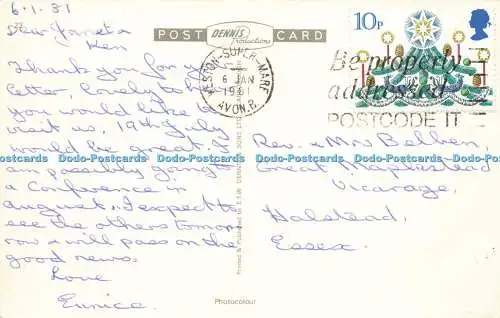 6.1.81
Dear Janet &
Ken
Thank you for yr
letter, lovely to hear
you would like to
visit us, 19th July
would be great. I
am possibly going to
a Conference in
August. I expect to
see the others tomor-
row & will pass on the
good news.
Love
Eunice.
POST CARD
DENNIS
Productions
WESTON-SUPER-MARE
6 JAN
1981
AVON.
10P
Be properly
addressed
POSTCODE IT
Rev. & Mrs
Great Maplestead
Vicarage,
Halstead,
Essex.
Dodo-Postcards Dodo-Postcards Dodo-Postcards Dodo-Postcards Dodo-Postcards Dodo-Postcards
Printed & Published by E.T.W. DENNIS & SONS LTD.
Photocolour